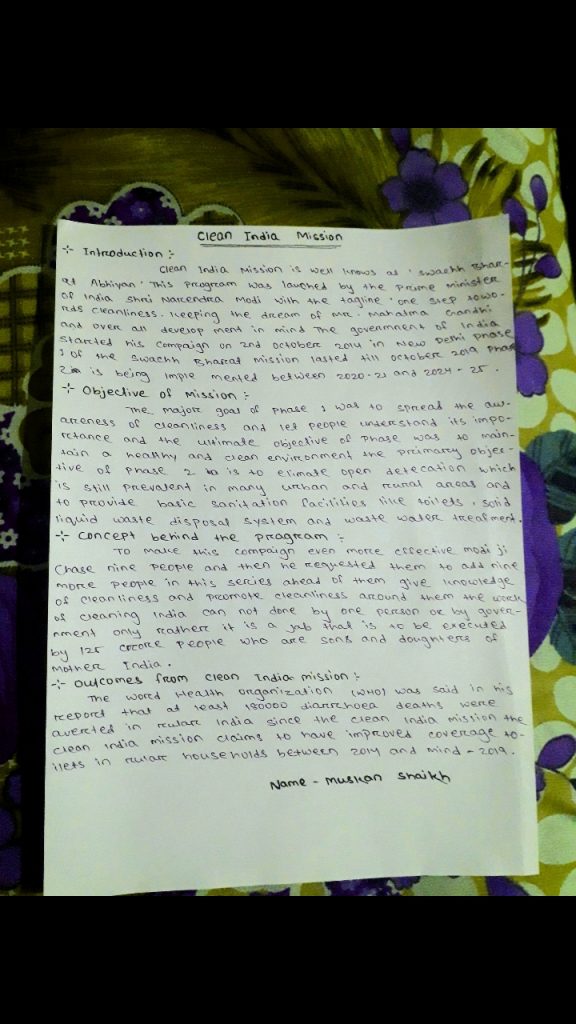 Clean India Mission
-:- Introduction :-
Clean India Mission is well knows as 'Swachh Bhar-
at Abhiyan'. This program was lauched by the Prime Minister
of India Shri Narendra Modi with the tagline 'one step towo-
rds cleanliness. Keeping the dream of Mr. Mahatma Gandhi
and over all develop ment in mind The government of India
started his compaign on 2nd October 2014 in New Delhi Phase
1 of the Swachh Bharat Mission lasted till October 2019 Phase
2 is being imple mented between 2020-21 and 2024-25.
-:- Objective of Mission :-
The major goal of Phase 1 was to spread the aw-
areness of cleanliness and let people understand its impo-
rtance and the ultimate objective of Phase was to main-
tain a healthy and clean environment the primary objec-
tive of Phase 2 is to elimate open defecation which
is still prevalent in many urban and rural areas and
to provide basic sanitation facilities like toilets, solid
liquid waste disposal system and waste water treatment.
-:- Concept behind the program :-
To make this compaign even more effective modi ji
Chose nine people and then he requested them to add nine
more people in this series ahead of them give knowledge
of cleanliness and promote cleanliness around them the work
of cleaning India can not done by one person or by gover-
nment only rather it is a job that is to be executed
by 125 corore people who are sons and doughters of
mother India.
-:- Outcomes from clean India mission :-
The word Health organization (WHO) was said in his
report that at least 180000 diarrhoea deaths were
averted in rular India since the clean India mission the
clean India mission claims to have improved coverage to-
ilets in rular households between 2014 and mind-2019.
Name - Muskan Shaikh